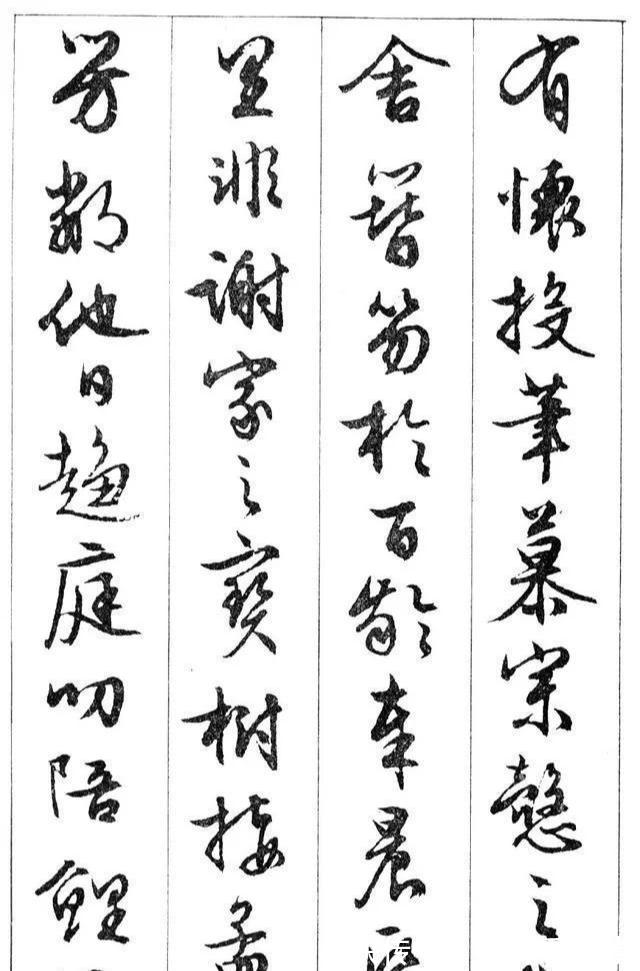 有懷投筆慕宗愨之
舍簪笏於百齡奉晨
里非謝家之寶樹接孟
芳鄰他日趨庭叨陪鯉